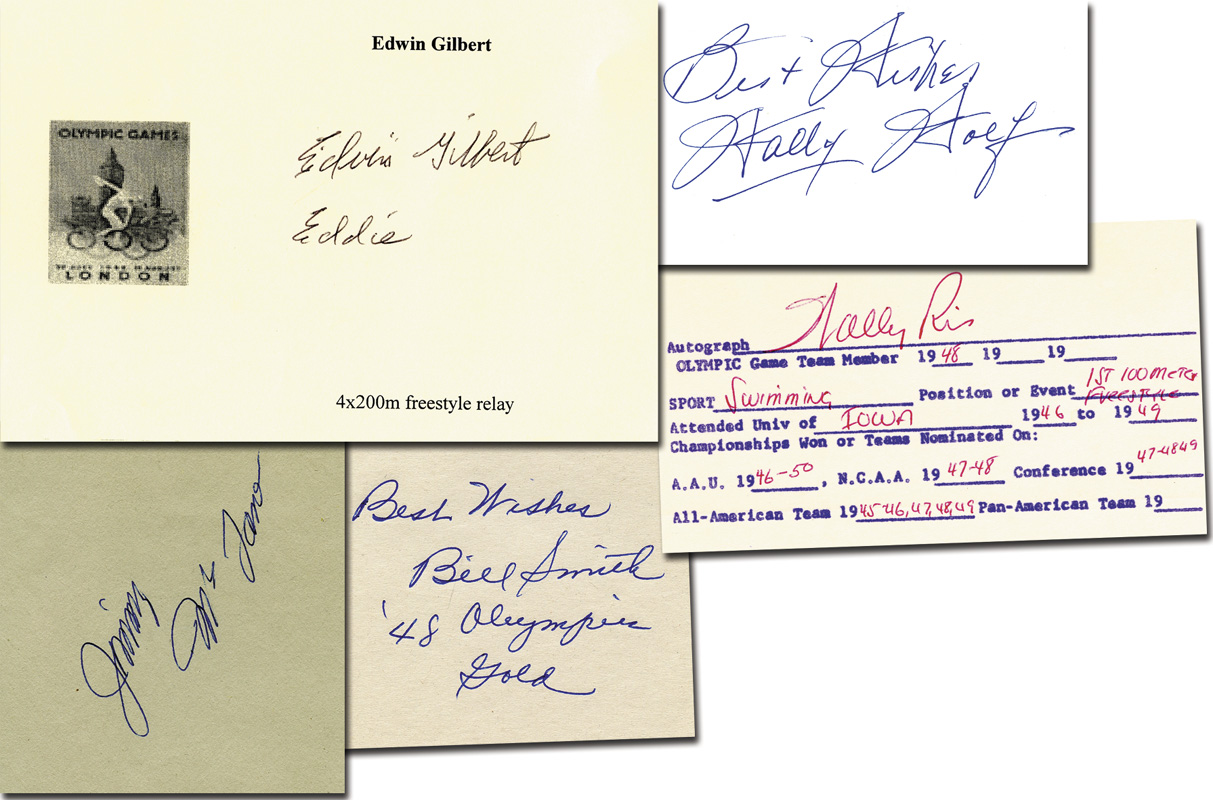 Edwin Gilbert
OLYMPIC GAMES
LONDON
Edwin Gilbert
Eddie
4x200m freestyle relay
Best Wishes
Wally Wolf
Wally Ris
Autograph
OLYMPIC Game Team Member 1948 19 19
SPORT Swimming Position or Event 1ST 100 METER
FREESTYLE
Attended Univ of IOWA 1946 to 1949
Championships Won or Teams Nominated On:
A.A.U. 1946-50, N.C.A.A. 1947-48 Conference 1947-4849
All-American Team 1945-46,47,48,49 Pan-American Team 19
Jimmy Mc Lane
Best Wishes
Bill Smith
'48 Olympics
Gold